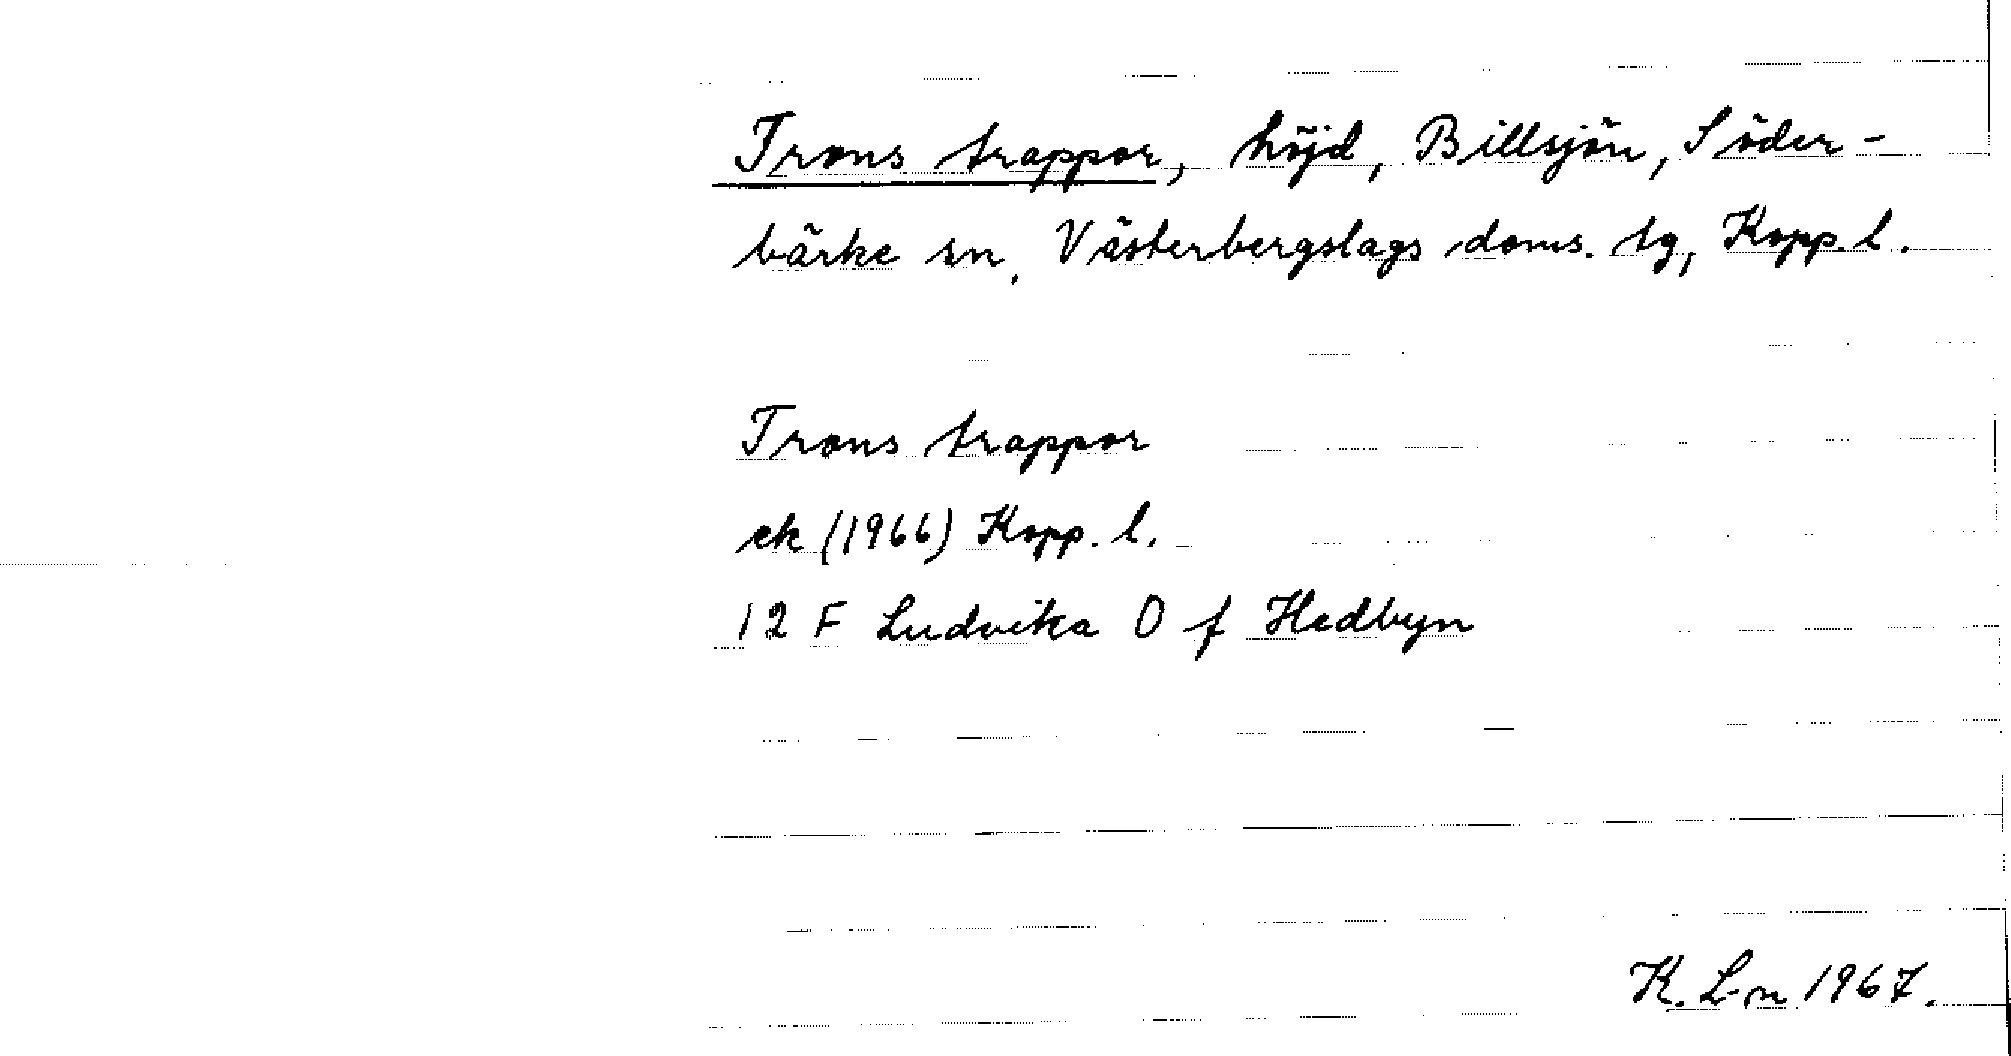 Trons trappor, höjd, Billsjön, Söder-
bärke sn, Västerbergslags doms. tg, Kopp. l.
Trons trappor
ek (1966) Kopp. l.
12 F Ludvika O f Hedbyn
K. L-n 1967.